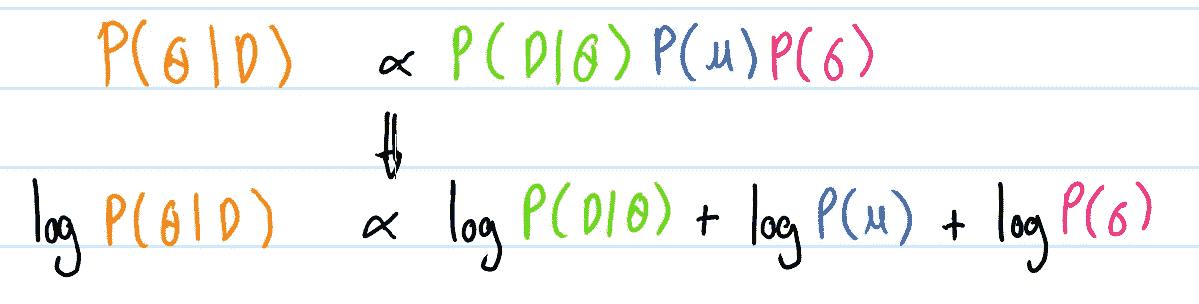 P(θ|D) ∝ P(D|θ) P(μ) P(σ)
⇓
log P(θ|D) ∝ log P(D|θ) + log P(μ) + log P(σ)